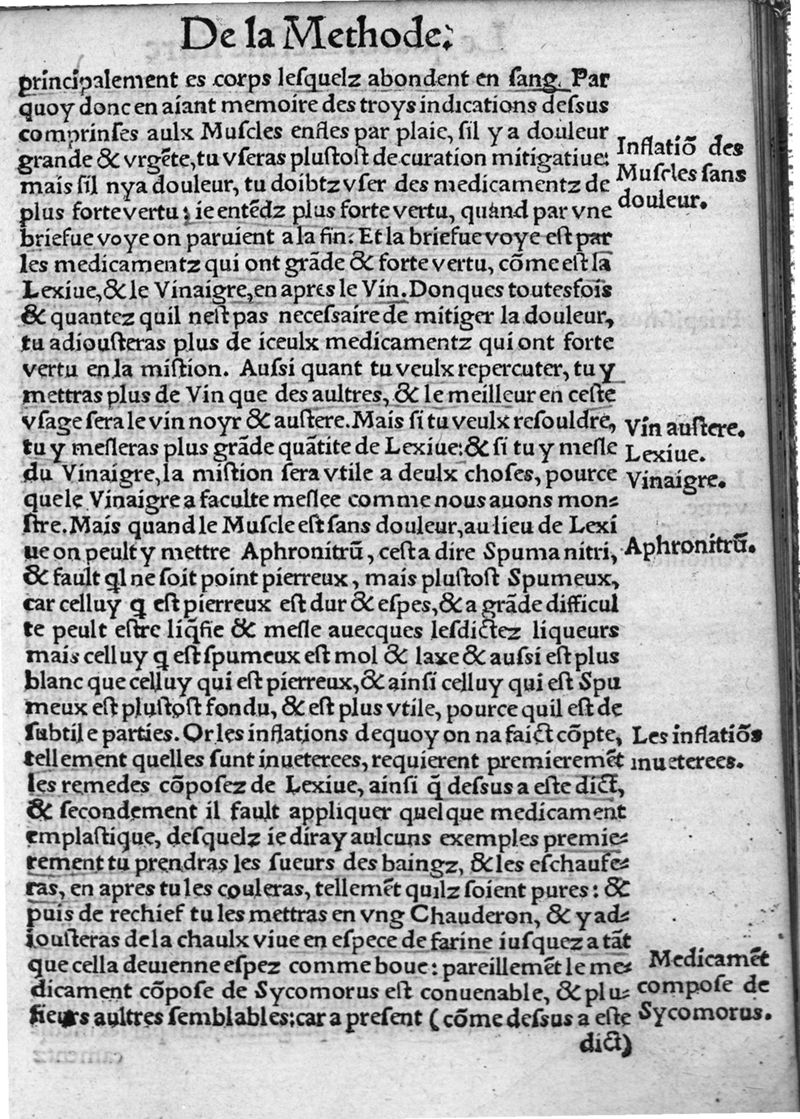 De la Methode.
principalement es corps leſquelz abondent en ſang. Par
quoy donc en aiant memoire des troys indications deſſus
comprinſes aulx Muſcles enfles par plaie, ſil y a douleur
grande & vrgẽte, tu vſeras pluſtoſt de curation mitigatiue:
mais ſil nya douleur, tu doibtz vſer des medicamentz de
plus forte vertu: ie entẽdz plus forte vertu, quand par vne
briefue voye on paruient a la fin: Et la briefue voye eſt par
les medicamentz qui ont grãde & forte vertu, cõme eſt la
Lexiue, & le Vinaigre, en apres le Vin. Donques toutesfois
& quantez quil neſt pas neceſſaire de mitiger la douleur,
tu adiouſteras plus de iceulx medicamentz qui ont forte
vertu en la miſtion. Auſſi quant tu veulx repercuter, tu y
mettras plus de Vin que des aultres, & le meilleur en ceſte
vſage ſera le vin noyr & auſtere. Mais ſi tu veulx reſouldre,
tu y meſleras plus grãde quãtite de Lexiue: & ſi tu y meſle
du Vinaigre, la miſtion ſera vtile a deulx choſes, pource
que le Vinaigre a faculte meſlee comme nous auons mon⸗
ſtre. Mais quand le Muſcle eſt ſans douleur, au lieu de Lexi
ue on peult y mettre Aphronitrũ, ceſt a dire Spuma nitri,
& fault ql̃ ne ſoit point pierreux, mais pluſtoſt Spumeux,
car celluy q̃ eſt pierreux eſt dur & eſpes, & a grãde difficul
te peult eſtre liq̃fie & meſle auecques leſdictez liqueurs
mais celluy q̃ eſt ſpumeux eſt mol & laxe & auſſi eſt plus
blanc que celluy qui eſt pierreux, & ainſi celluy qui eſt Spu
meux eſt pluſtoſt fondu, & eſt plus vtile, pource quil eſt de
ſubtile parties. Or les inflations dequoy on na faict cõpte,
tellement quelles ſunt inueterees, requierent premieremẽt
les remedes cõpoſez de Lexiue, ainſi q̃ deſſus a eſte dict,
& ſecondement il fault appliquer quelque medicament
emplaſtique, deſquelz ie diray aulcuns exemples premie⸗
rement tu prendras les ſueurs des baingz, & les eſchaufe⸗
ras, en apres tu les couleras, tellemẽt quilz ſoient pures: &
puis de rechief tu les mettras en vng Chauderon, & y ad⸗
iouſteras de la chaulx viue en eſpece de farine iuſquez a tãt
que cella deuienne eſpez comme boue: pareillemẽt le me⸗
dicament cõpoſe de Sycomorus eſt conuenable, & plu⸗
ſieurs aultres ſemblables: car a preſent (cõme deſſus a eſte
dict)
Inflatiõ des
Muſcles ſans
douleur.
Vin auſtere.
Lexiue.
Vinaigre.
Aphronitrũ.
Les inflatiõs
inueterees.
Medicamẽt
compoſe de
Sycomorus.